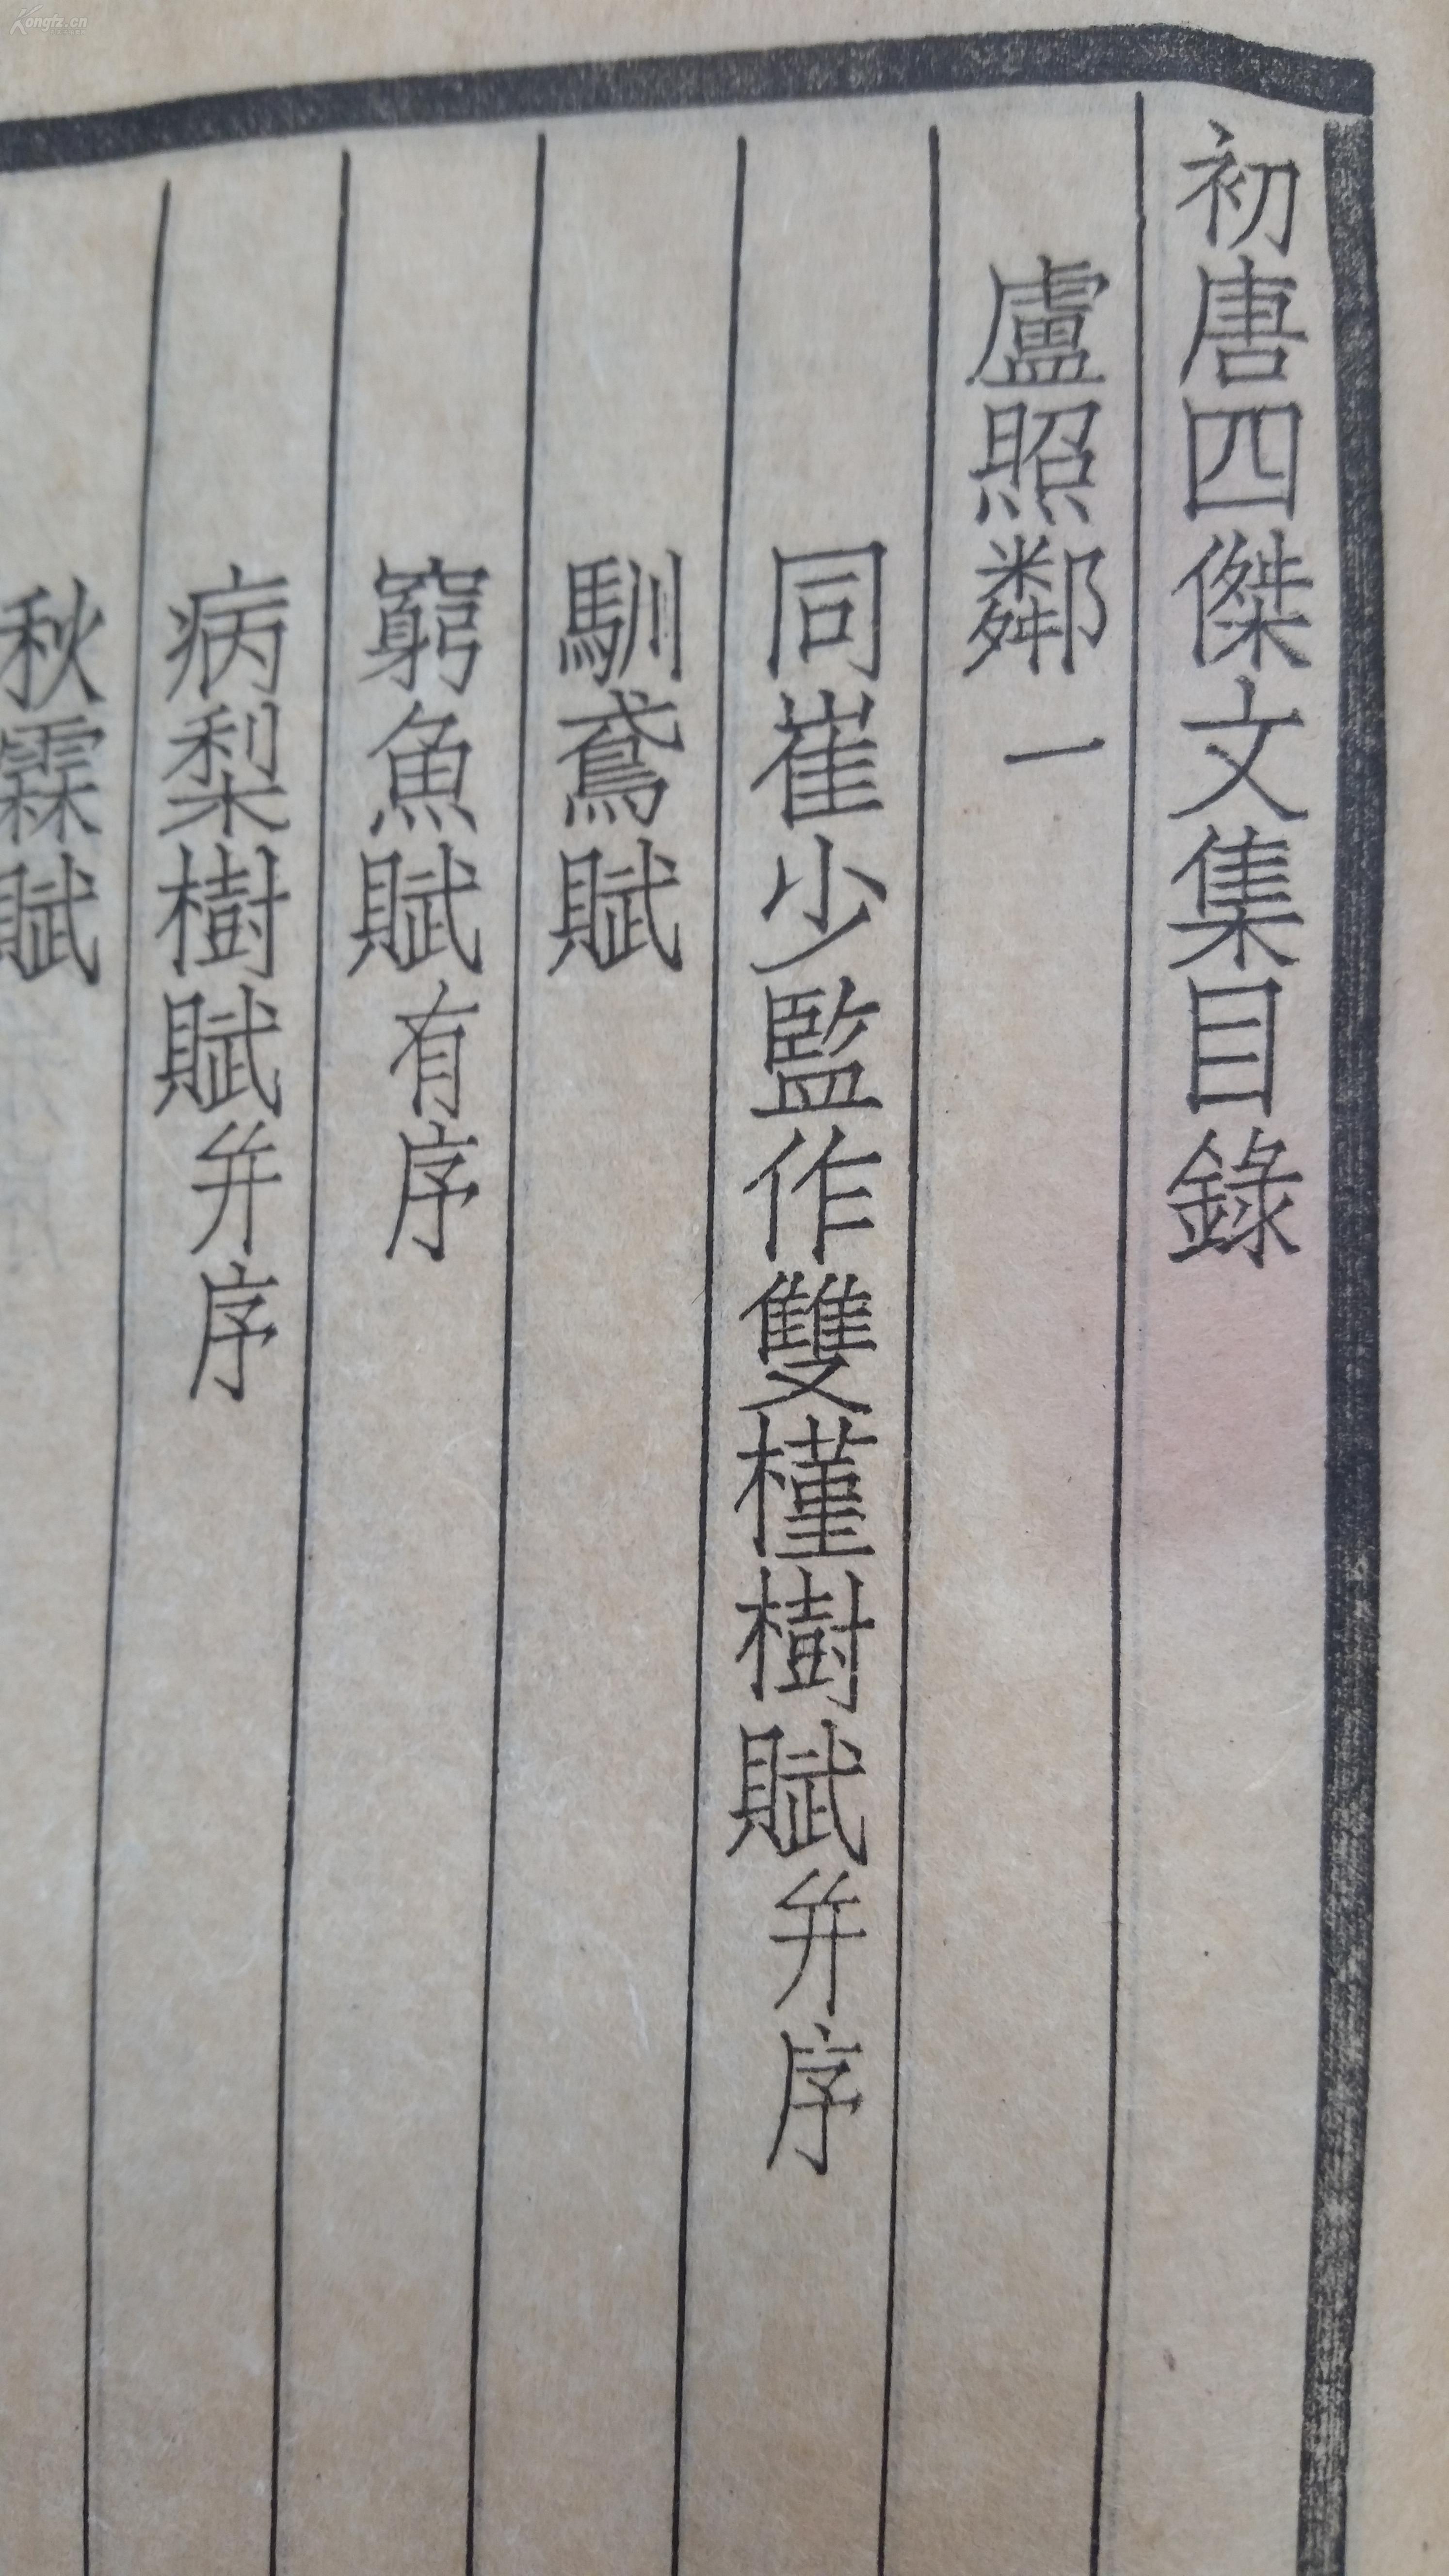 初唐四傑文集目錄
盧照鄰一
同崔少監作雙槿樹賦并序
馴鳶賦
窮魚賦有序
病梨樹賦并序
秋霖賦
Kongfz.cn